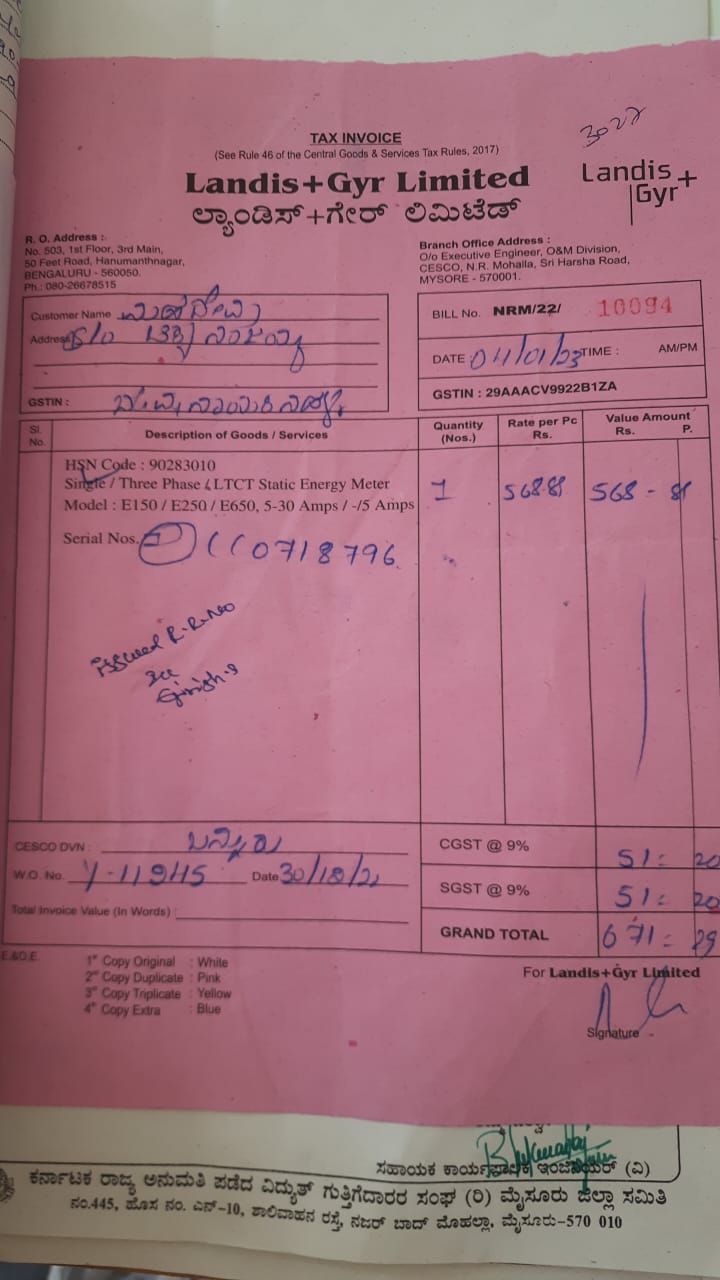 3027
TAX INVOICE
(See Rule 46 of the Central Goods & Services Tax Rules, 2017)
Landis+Gyr Limited
ಲ್ಯಾಂಡಿಸ್+ಗೇರ್ ಲಿಮಿಟೆಡ್
Landis+
Gyr+
R. O. Address :-
No. 503, 1st Floor, 3rd Main,
50 Feet Road, Hanumanthnagar,
BENGALURU - 560050.
Ph.: 080-26678515
Branch Office Address :
O/o Executive Engineer, O&M Division,
CESCO, N.R. Mohalla, Sri Harsha Road,
MYSORE - 570001.
Customer Name ಮಹದೇವ
Address S/o
GSTIN :
BILL No. NRM/22/ 10094
DATE 04/01/23 TIME : AM/PM
GSTIN : 29AAACV9922B1ZA
Sl. No. Description of Goods / Services Quantity (Nos.) Rate per Pc Rs. Value Amount Rs. P.
HSN Code : 90283010
Single / Three Phase / LTCT Static Energy Meter 1 568.81 568 - 81
Model : E150 / E250 / E650, 5-30 Amps / -/5 Amps
Serial Nos. 0718796
issued R.R.No
Girish.S
CESCO DVN : ಬನ್ನೂರು
W.O. No. Y-11945 Date
Total Invoice Value (In Words)
CGST @ 9% 51 = 20
SGST @ 9% 51 = 20
GRAND TOTAL 671 = 29
E.&O.E.
1st Copy Original : White
2nd Copy Duplicate : Pink
3rd Copy Triplicate : Yellow
4th Copy Extra : Blue
For Landis+Gyr Limited
Signature
ಸಹಾಯಕ ಕಾರ್ಯಪಾಲಕ ಇಂಜಿನಿಯರ್ (ವಿ)
ಕರ್ನಾಟಕ ರಾಜ್ಯ ಅನುಮತಿ ಪಡೆದ ವಿದ್ಯುತ್ ಗುತ್ತಿಗೆದಾರರ ಸಂಘ (ರಿ) ಮೈಸೂರು ಜಿಲ್ಲಾ ಸಮಿತಿ
ನಂ.445, ಹೊಸ ನಂ. ಎನ್-10, ಶಾಲಿವಾಹನ ರಸ್ತೆ, ನಜರ್ ಬಾದ್ ಮೊಹಲ್ಲಾ, ಮೈಸೂರು-570 010